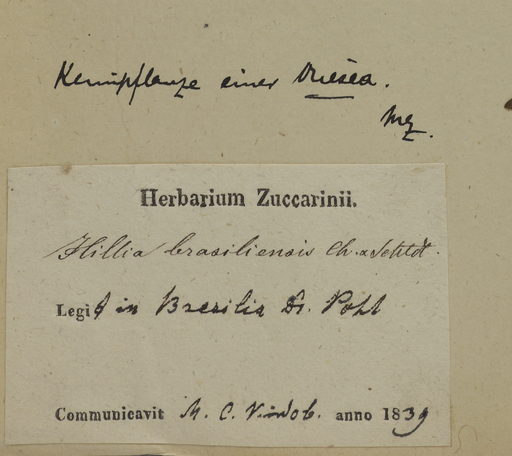 Keimpflanze einer Vriesea.
Mez.
Herbarium Zuccarinii.
Hillia brasiliensis Ch. & Schldl.
Legit in Brasilia Dr. Pohl
Communicavit M. C. Vindob. anno 1839